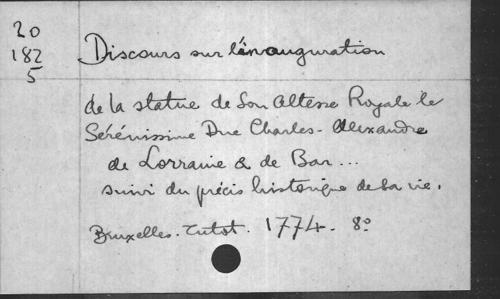 20
182
5
Discours sur l'inauguration
de la statue de Son Altesse Royale le
Sérénissime Duc Charles-Alexandre
de Lorraine & de Bar...
suivi du précis historique de sa vie.
Bruxelles. Tutot. 1774. 8º